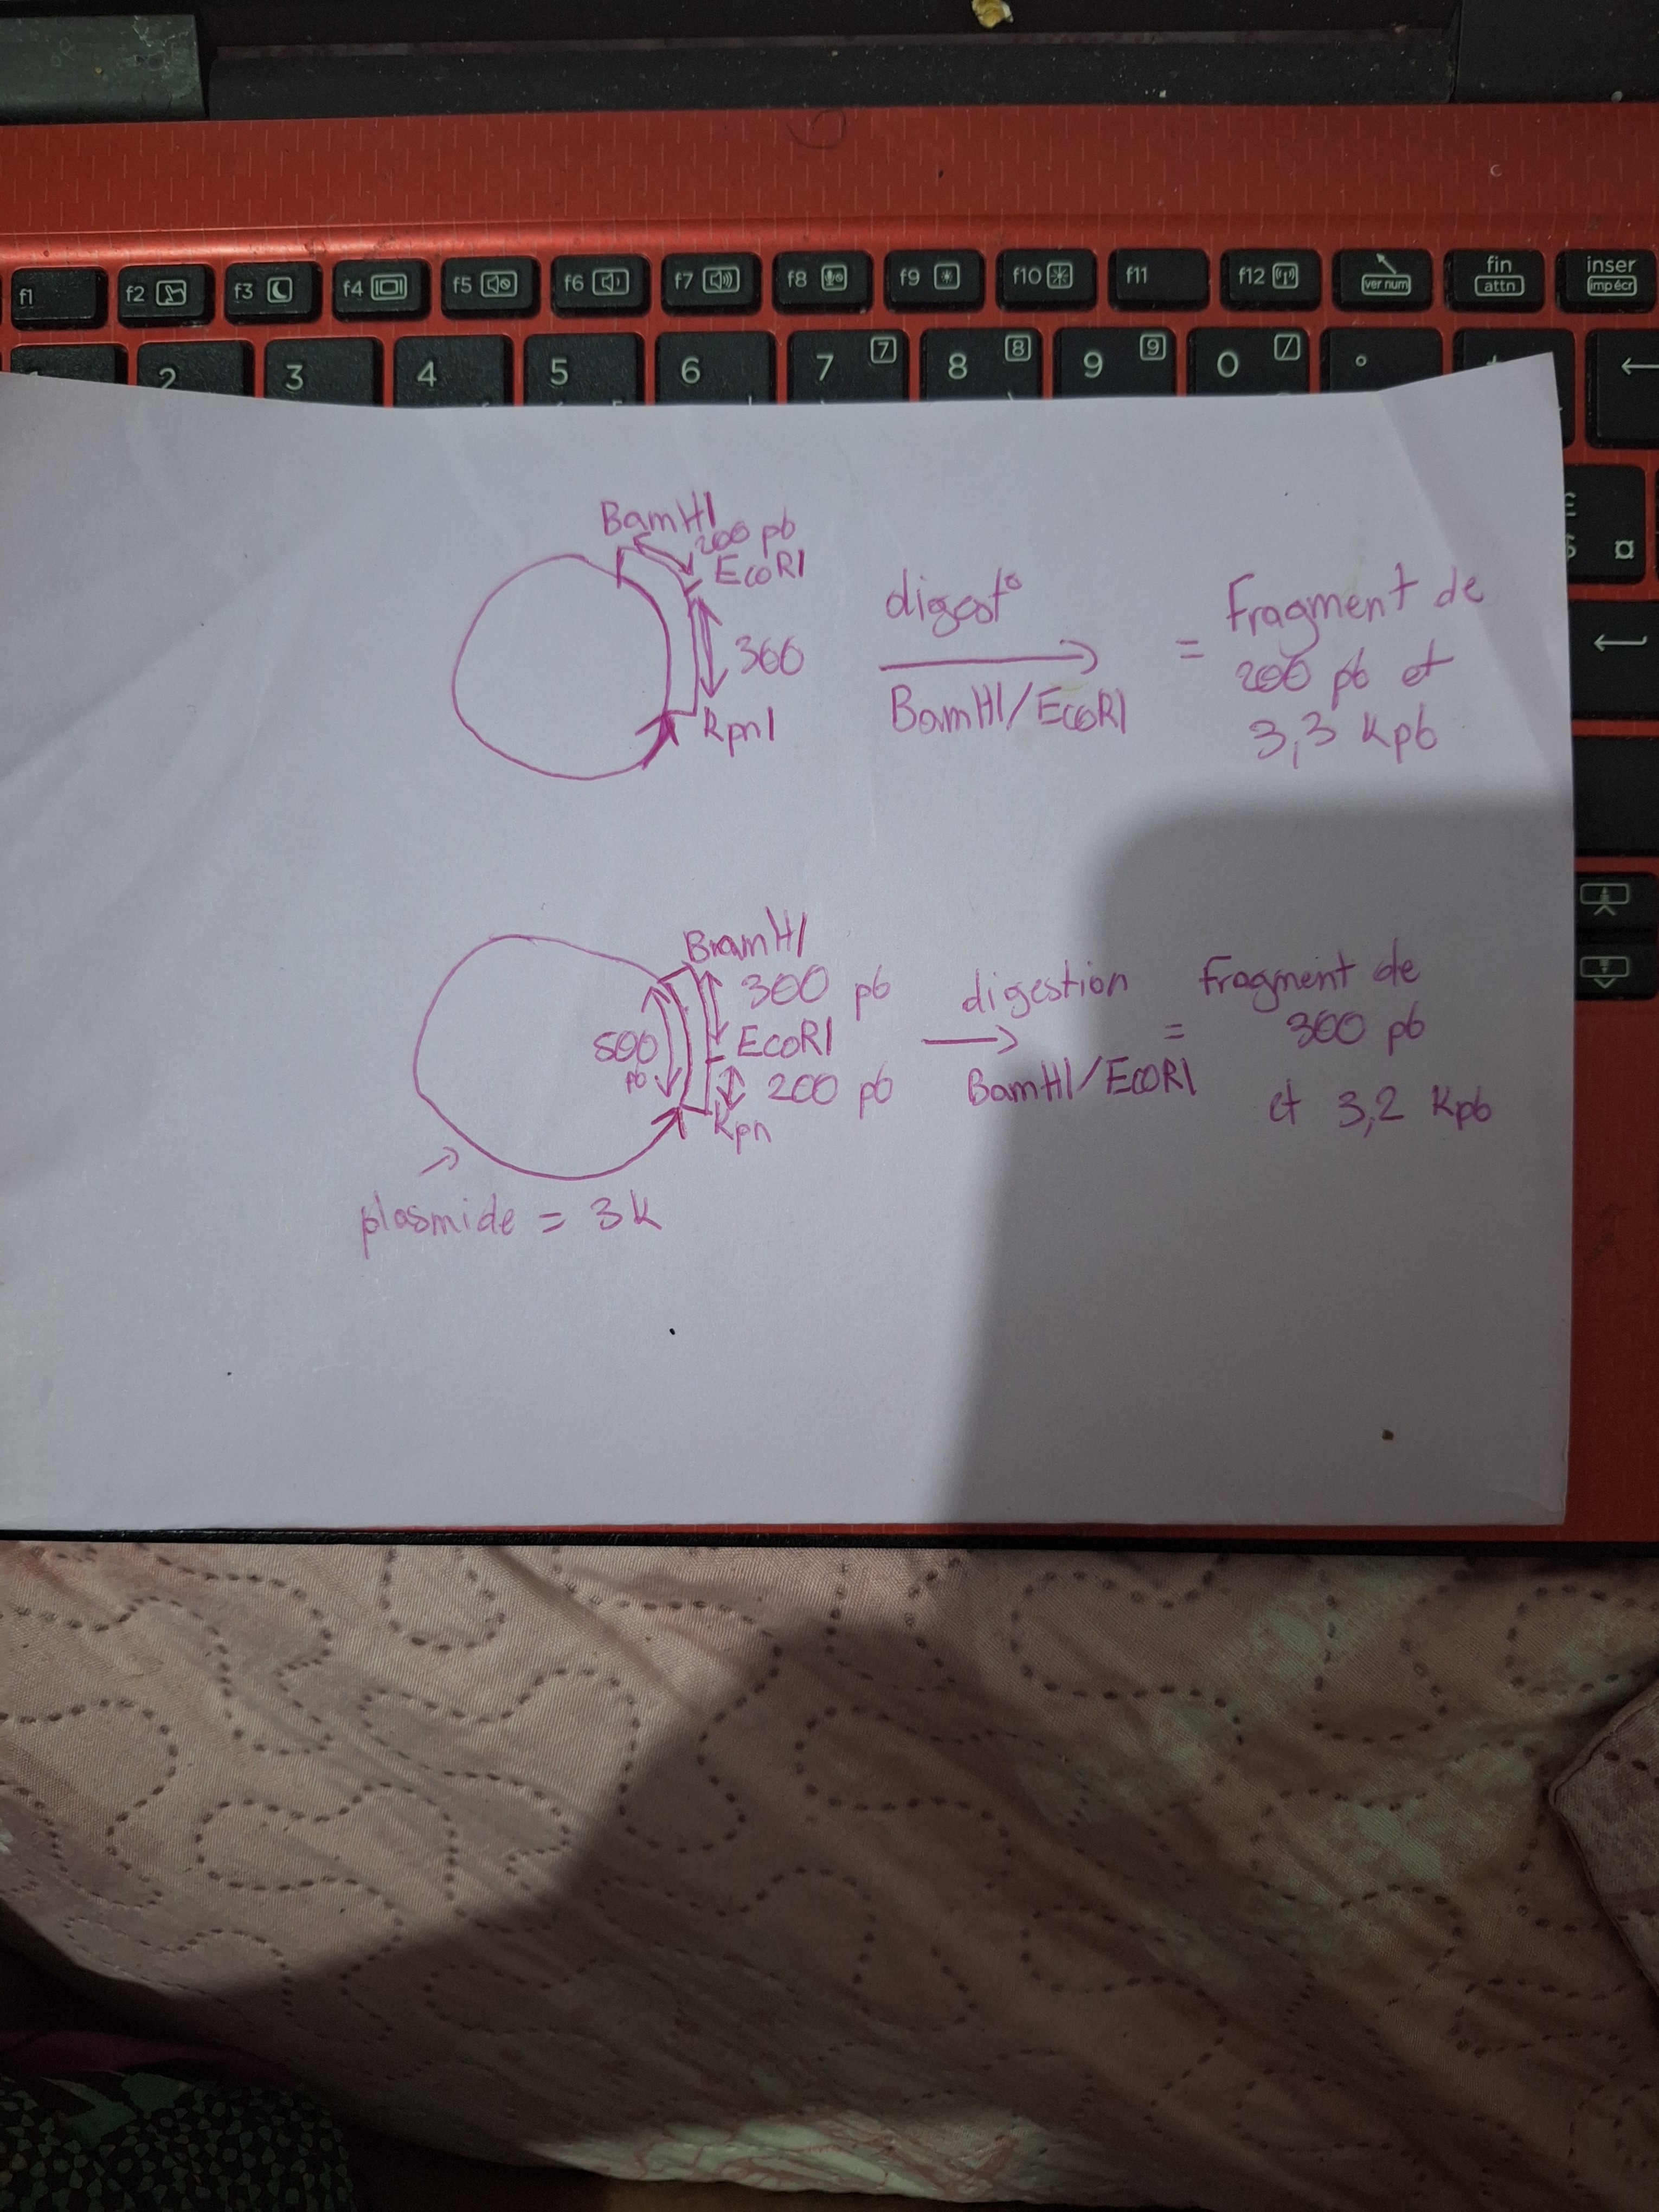 f1
f2
f3
f4
f5
f6
f7
f8
f9
f10
f11
f12
ver num
fin
attn
inser
imp écr
2
3
4
5
6
7 7
8 8
9 9
0 /
°
BamHI
200 pb
EcoRI
300
KpnI
digest°
BamHI/EcoRI
= Fragment de
200 pb et
3,3 Kpb
BamHI
300 pb
500
pb
EcoRI
200 pb
Kpn
digestion
BamHI/EcoRI
= Fragment de
300 pb
et 3,2 Kpb
plasmide = 3k